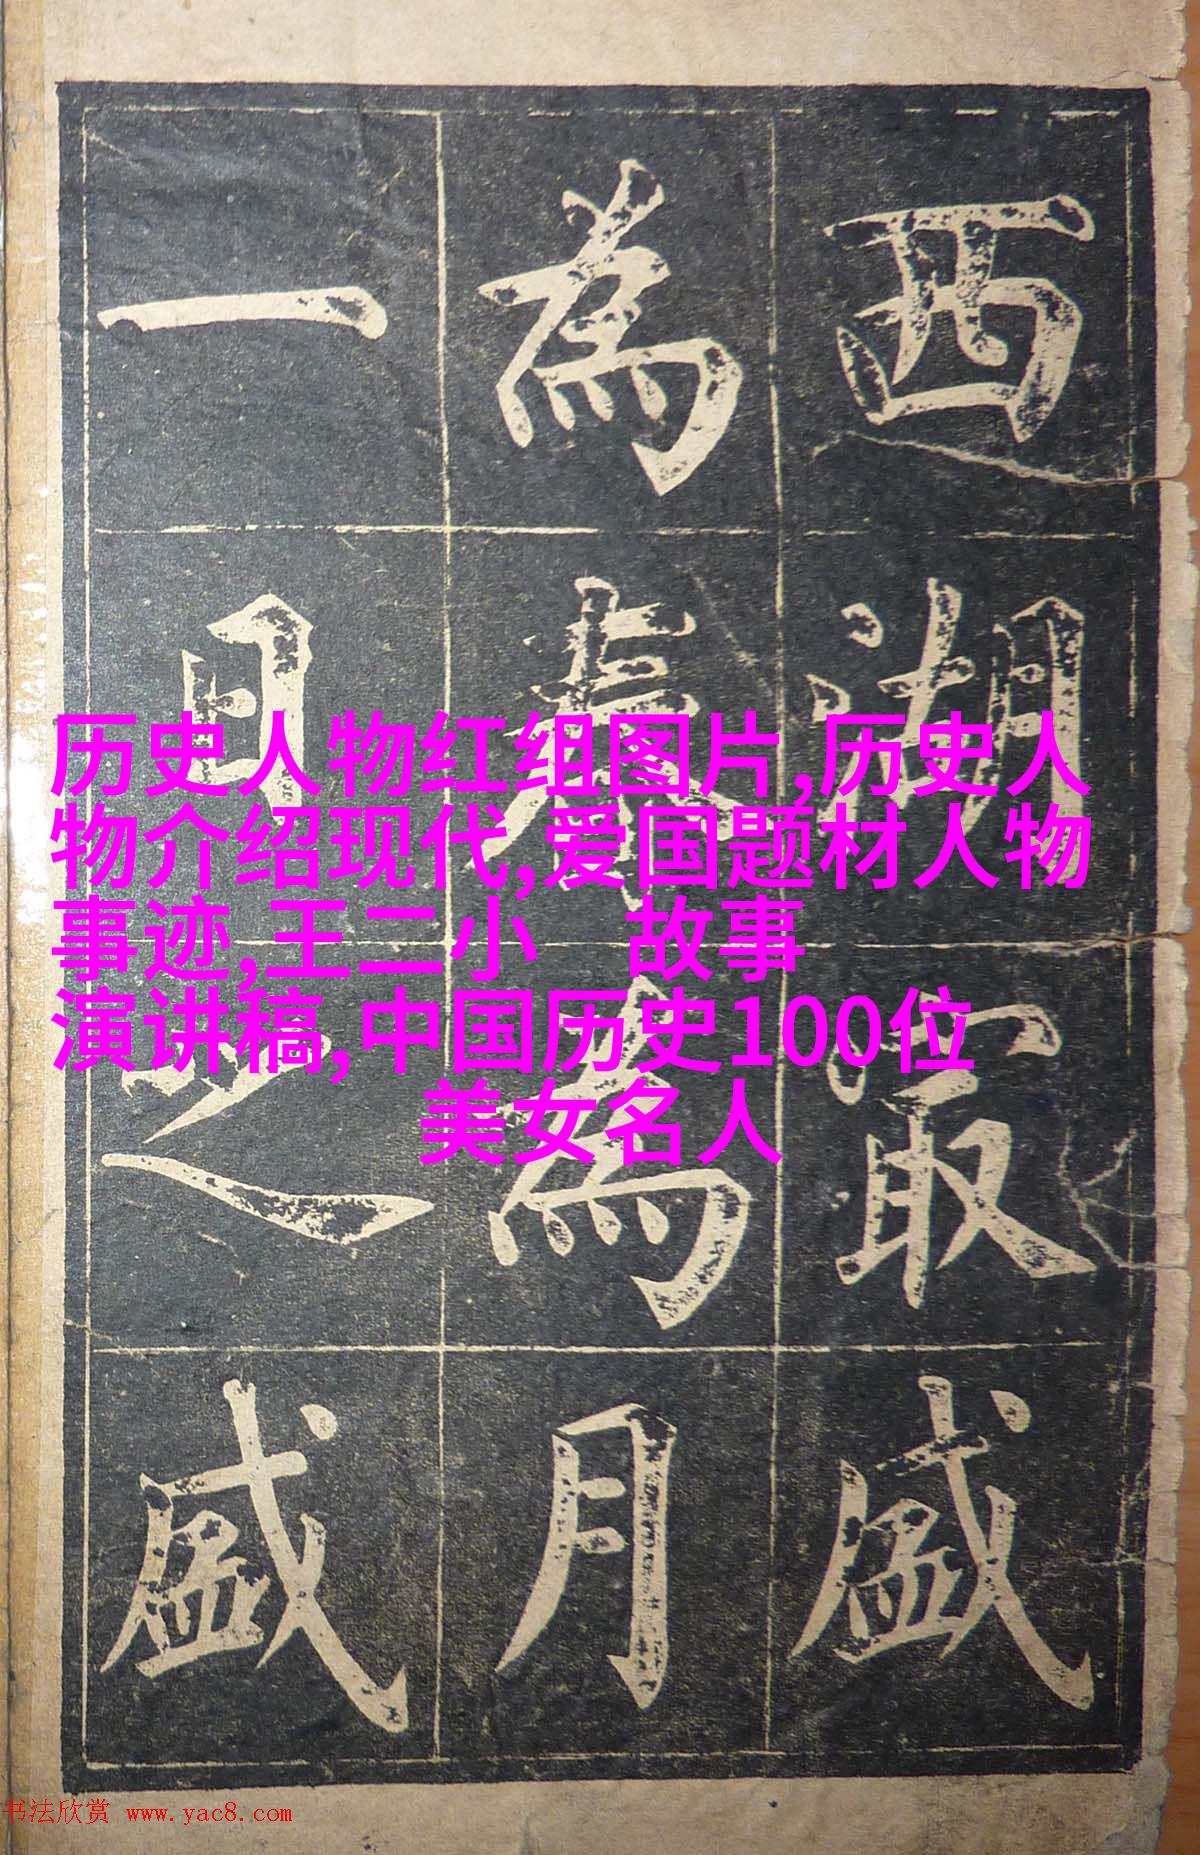 西湖最盛
為春為月
一日之盛
历史人物红组图片,历史人
物介绍现代,爱国题材人物
事迹,王二小 故事
演讲稿,中国历史100位
美女名人
书法欣赏 www.yac8.com